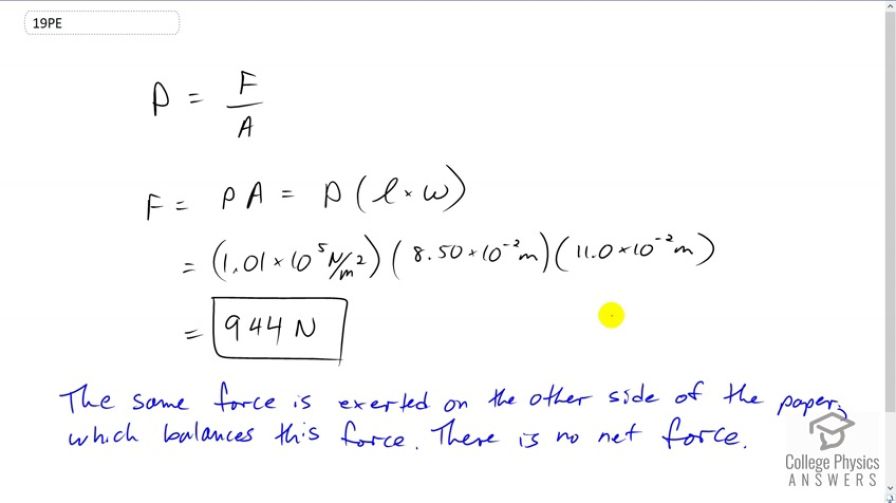 19PE
P = F/A
F = PA = P(l × w)
= (1.01 × 10⁵ N/m²)(8.50 × 10⁻² m)(11.0 × 10⁻² m)
= 944 N
The same force is exerted on the other side of the paper,
which balances this force. There is no net force.
College Physics
ANSWERS